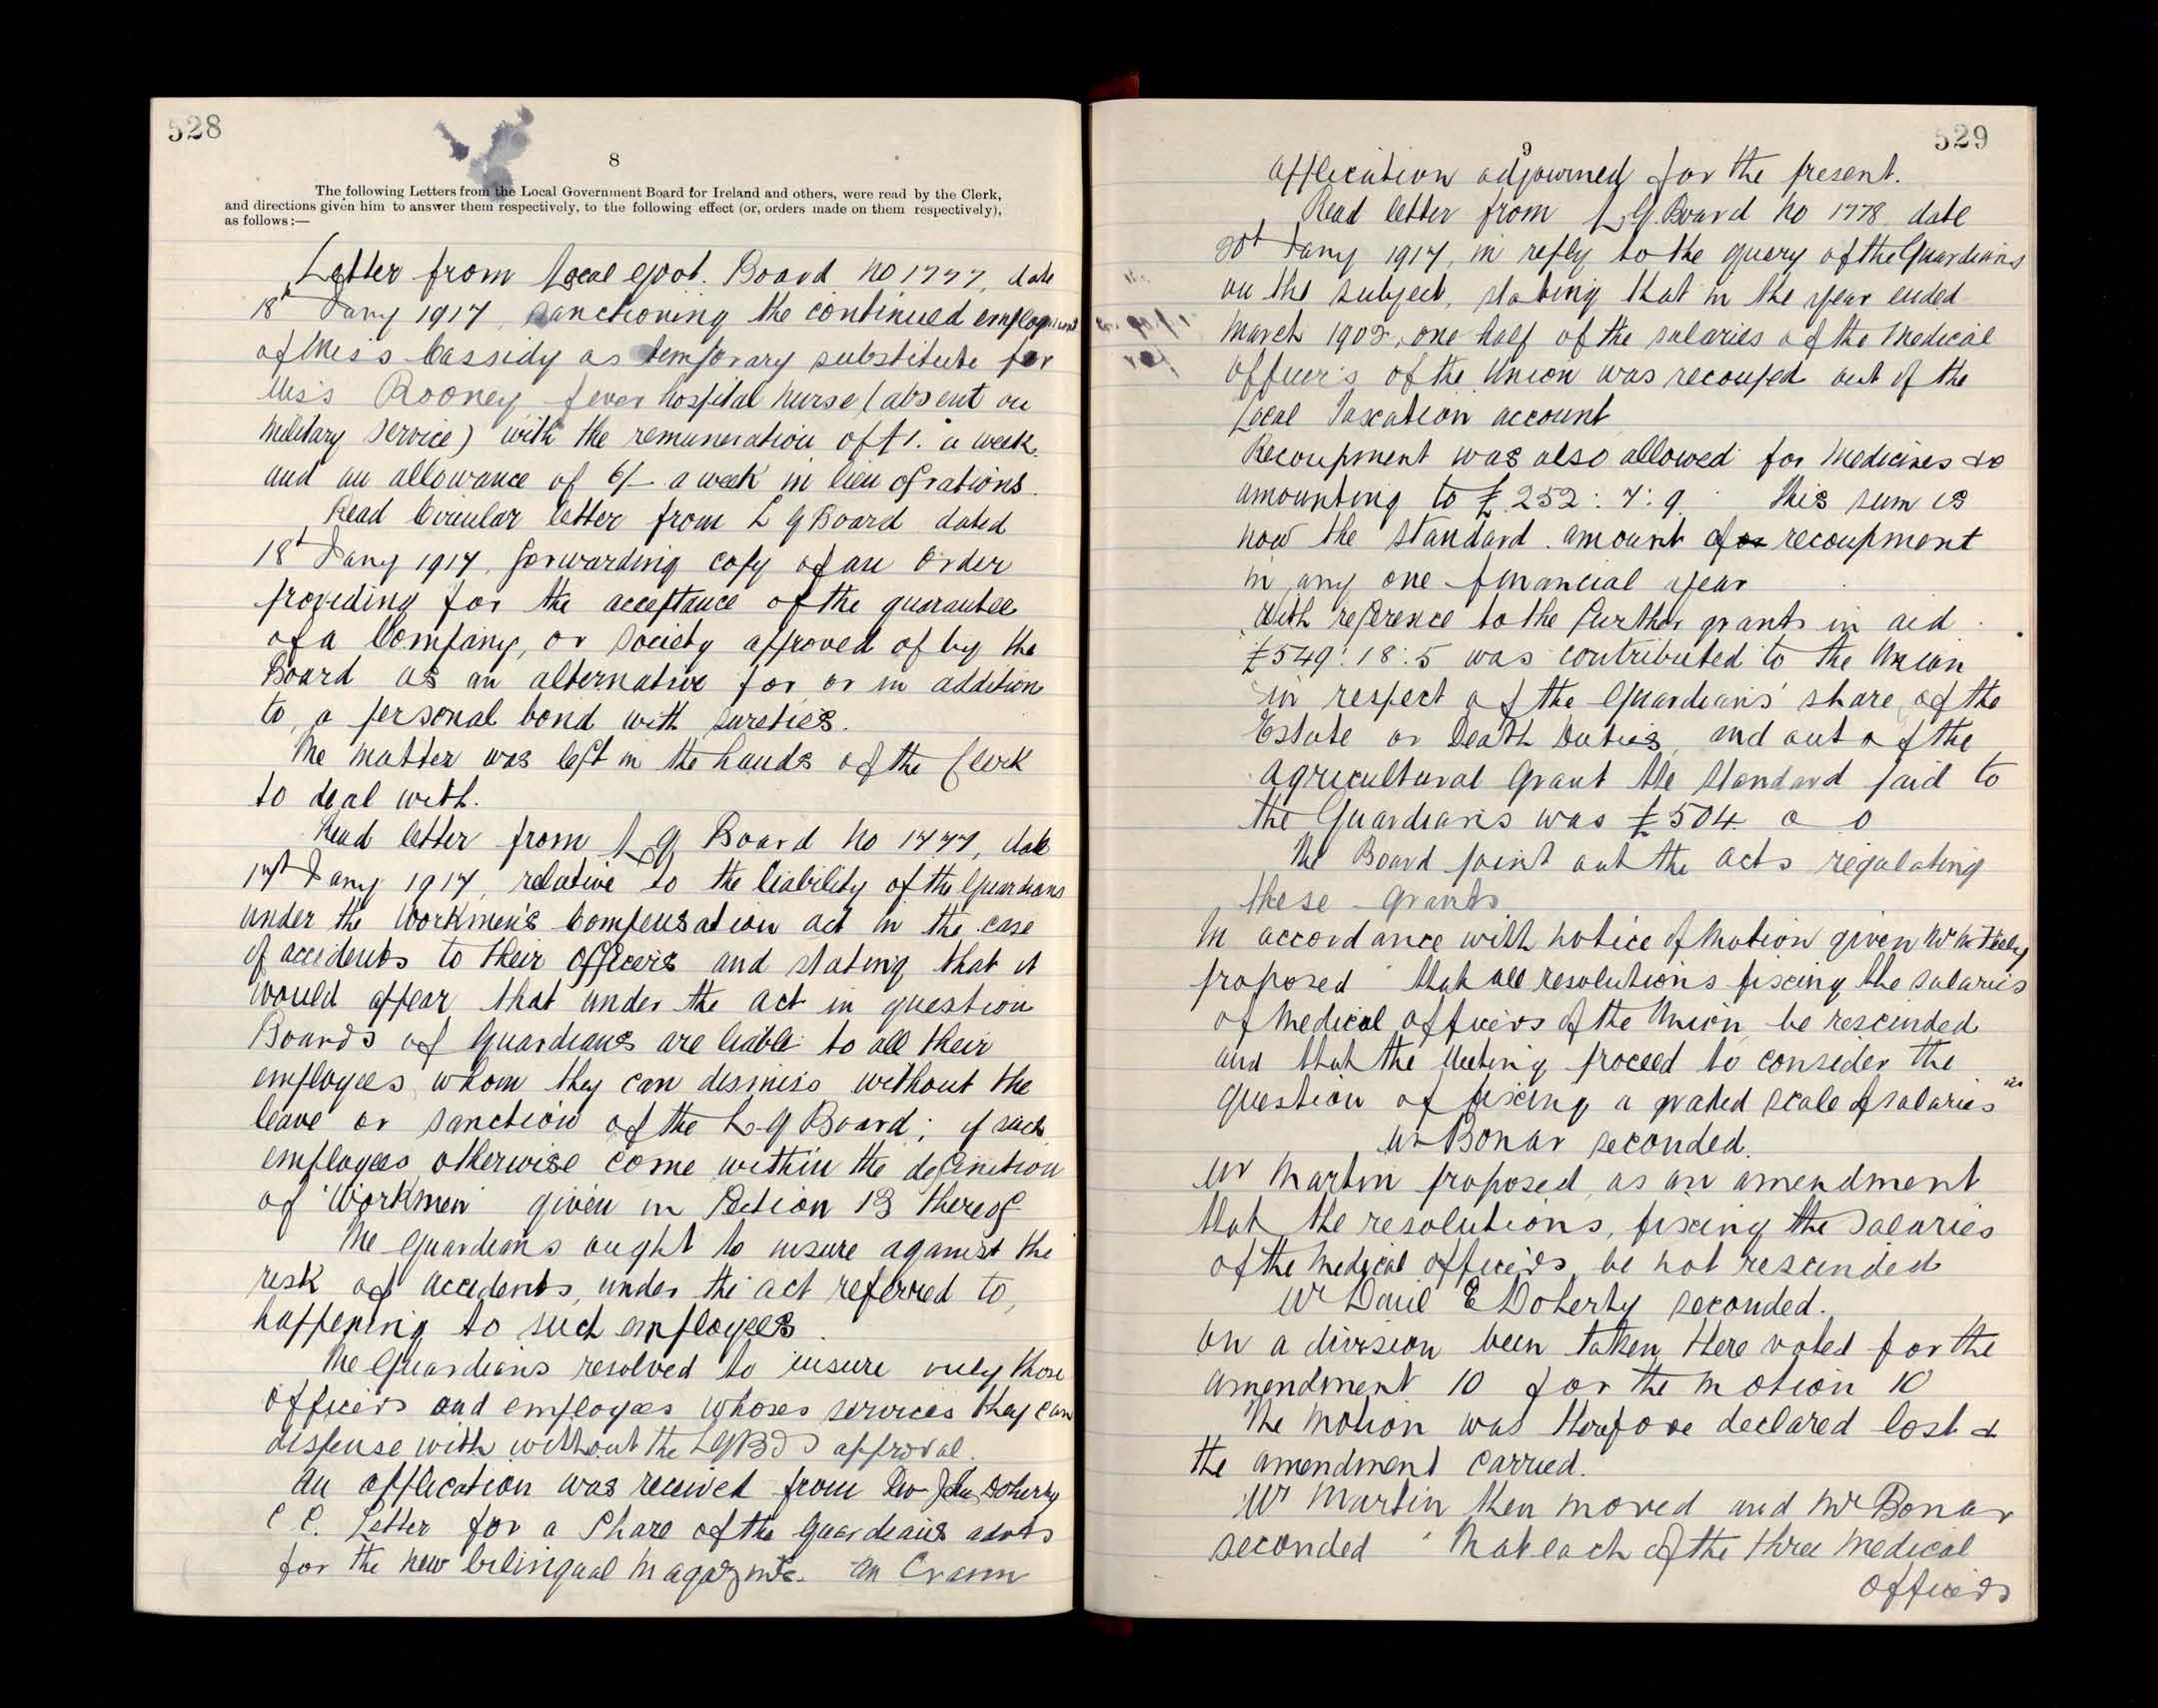 528
8
The following Letters from the Local Government Board for Ireland and others, were read by the Clerk,
and directions given him to answer them respectively, to the following effect (or, orders made on them respectively),
as follows:—
Letter from Local Govt. Board No 1777, date
18th Jany 1917, sanctioning the continued employment
of Miss Cassidy as temporary substitute for
Miss Rooney fever hospital nurse (absent on
military service) with the remuneration of £1. a week
and an allowance of 6/- a week in lieu of rations.
Read Circular letter from L G Board dated
18th Jany 1917, forwarding copy of an Order
providing for the acceptance of the guarantee
of a Company, or Society approved of by the
Board as an alternative for or in addition
to, a personal bond with sureties.
The matter was left in the hands of the Clerk
to deal with.
Read letter from L G Board No 1777, date
17th Jany 1917, relative to the liability of the Guardians
under the Workmen's Compensation act in the case
of accidents to their Officers and stating that it
would appear that under the Act in question
Boards of Guardians are liable to all their
employees whom they can dismiss without the
leave or sanction of the L-G Board; if such
employees otherwise come within the definition
of 'Workmen' given in Section 13 thereof
The Guardians ought to insure against the
risk of accidents, under the act referred to,
happening to such employees.
The Guardians resolved to insure only those
officers and employees whoses services they can
dispense with without the LGBds approval.
An application was received from Rev John Doherty
C C. Letter for a Share of the Guardians advts
for the new bilingual Magazine. An Crann
529
9
application adjourned for the present.
Read letter from L.G. Board No 1778 date
20th Jany 1917, in reply to the query of the Guardians
on the subject, stating that in the year ended
March 1902, one half of the salaries of the Medical
Officers of the Union was recouped out of the
Local Taxation account
Recoupment was also allowed for Medicines &c
amounting to £252: 7: 9. This sum is
now the standard amount of recoupment
in any one financial year
With reference to the further grants in aid
£549: 18: 5 was contributed to the Union
in respect of the Guardians' share of the
Estate or Death Duties, and out of the
Agricultural Grant the standard paid to
the Guardians was £504 0 0
The Board point out the Acts regulating
these Grants
In accordance with notice of Motion given Mr
proposed "that all resolutions fixing the salaries
of Medical officers of the Union be rescinded
and that the Meeting proceed to consider the
question of fixing a graded scale of salaries"
Mr Bonar seconded.
Mr Martin proposed as an amendment
that the resolutions, fixing the salaries
of the Medical officers be not rescinded
Mr Daniel E Doherty seconded.
On a division been taken there voted for the
amendment 10 for the motion 10
The motion was therefore declared lost &
the amendment carried.
Mr Martin then moved and Mr Bonar
seconded "That each of the three Medical
officers